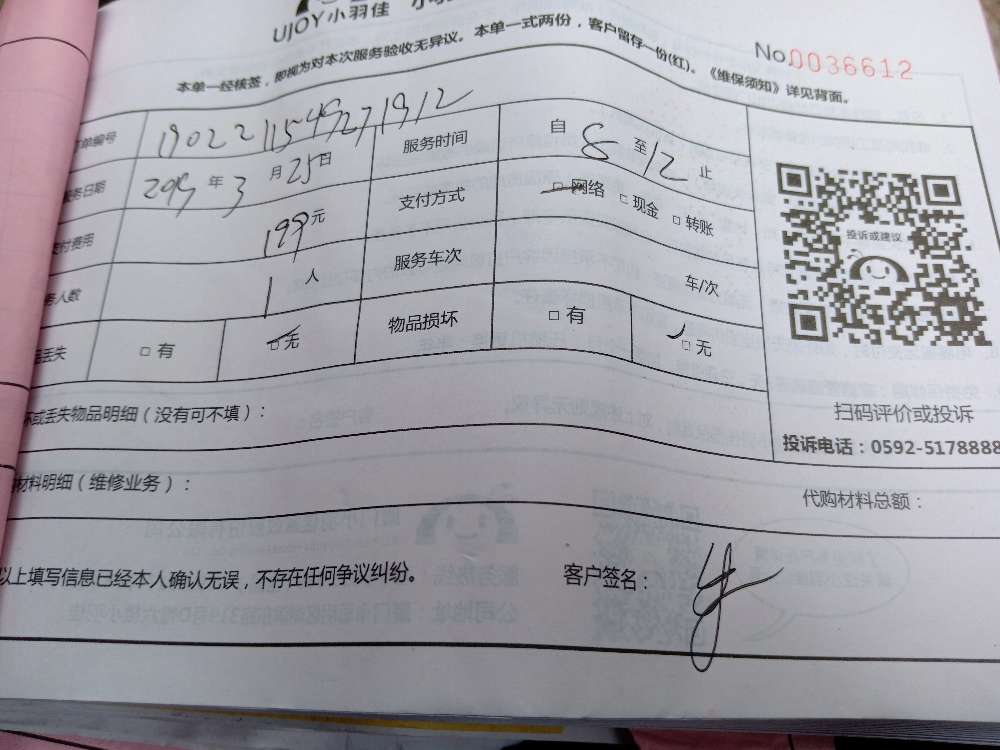 UJOY小羽佳
本单一经核签，即视为对本次服务验收无异议。本单一式两份，客户留存一份(红)。《维保须知》详见背面。
No.0036612
单编号 服务时间 自 8 至 12 止
务日期 年 3 月 25 日 支付方式 □ 网络 □ 现金 □ 转账
付费用 199 元 服务车次 车/次
务人数 1 人 物品损坏 □ 有 □ 无
丢失 □ 有 □ 无
投诉或建议
扫码评价或投诉
投诉电话：0592-5178888
坏或丢失物品明细（没有可不填）：
材料明细（维修业务）：
代购材料总额：
以上填写信息已经本人确认无误，不存在任何争议纠纷。
客户签名：